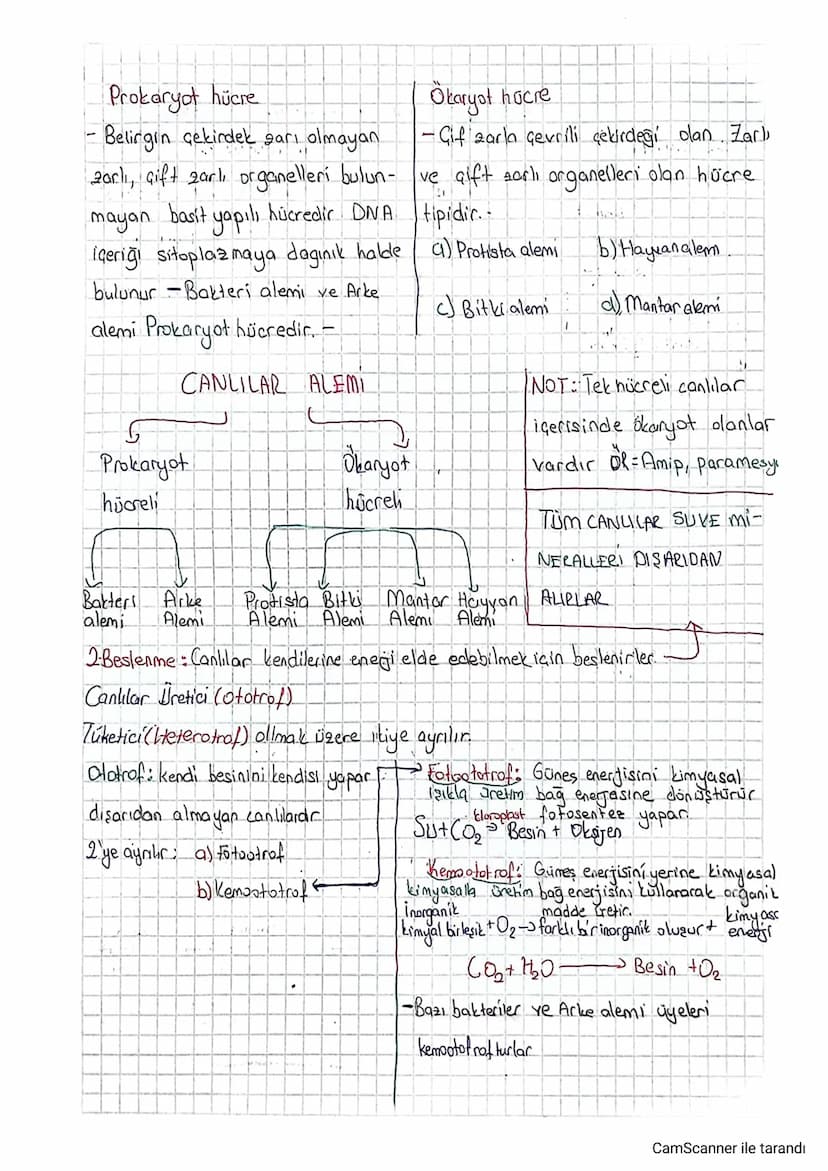 Prokaryot hücre
- Belirgin çekirdek zarı olmayan
zarlı, çift zarlı organelleri bulun-
mayan basit yapılı hücredir DNA
içeriği sitoplazmaya dağınık halde
bulunur - Bakteri alemi ve Arke
alemi Prokaryot hücredir. -
Ökaryot hücre
- Çif zarla çevrili çekirdeği olan. Zarlı
ve çift zarlı organelleri olan hücre
tipidir.
a) Protista alemi b) Hayvan alem
c) Bitki alemi d) Mantar alemi
CANLILAR ALEMİ
Prokaryot
hücreli
Ökaryot
hücreli
Bakteri
alemi
Arke
Alemi
Protista
Alemi
Bitki
Alemi
Mantar
Alemi
Hayvan
Alemi
NOT: Tek hücreli canlılar
içerisinde ökaryot olanlar
vardır ÖR= Amip, paramesy
TÜM CANLILAR SU VE Mİ-
NERALLERİ DIŞARIDAN
ALIRLAR
2-Beslenme: Canlılar kendilerine enerji elde edebilmek için beslenirler.
Canlılar Üretici (ototrof)
Tüketici (Heterotrof) ollmak üzere ikiye ayrılır.
Ototrof: kendi besinini kendisi yapar
dışarıdan almayan canlılardır
2'ye ayrılır: a) Fotootrof
b) Kemoototrof
Fotoototrof: Güneş enerjisini kimyasal
ışıkla üretim bağ enerjasine dönüştürür
kloroplast fotosentez yapar.
Su+CO₂ → Besin + Oksijen
Kemoototrof: Güneş enerjisini yerine kimyasal
kimyasalla üretim bağ enerjisini kullanarak organik
inorganik madde üretir. kimyasa
kimyal birleşik + O₂ → farklı bir inorganik oluşur + enerji
CO₂ + H₂O → Besin + O₂
- Bazı bakteriler ve Arke alemi üyeleri
kemoototrofturlar
CamScanner ile tarandı